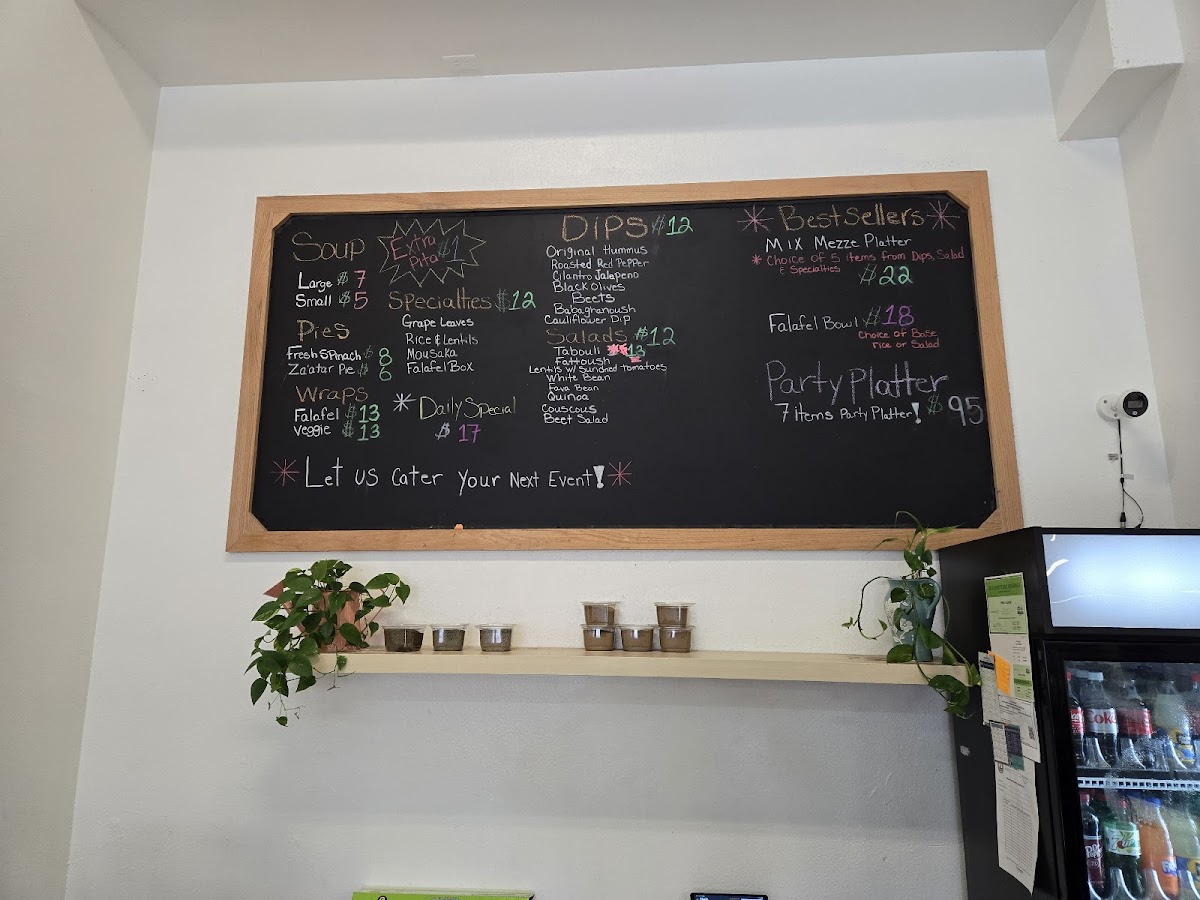 Soup
Large $ 7
Small $ 5
Extra
Pita $1
Pies
Fresh Spinach $ 8
Za'atar Pie $ 6
Wraps
Falafel $ 13
Veggie $ 13
Specialties $12
Grape Leaves
Rice & Lentils
Mousaka
Falafel Box
* Daily Special
$ 17
* Let us Cater Your Next Event! *
Dips $12
Original Hummus
Roasted Red Pepper
Cilantro Jalapeno
Black Olives
Beets
Babaghanoush
Cauliflower Dip
Salads $12
Tabouli $13
Fattoush
Lentils w/ Sundried tomatoes
White Bean
Fava Bean
Quinoa
Couscous
Beet Salad
* Best Sellers *
Mix Mezze Platter
* Choice of 5 items from Dips, Salad
& Specialties $22
Falafel Bowl $18
Choice of Base
rice or Salad
Party Platter
7 items Party Platter! $ 95
Coke